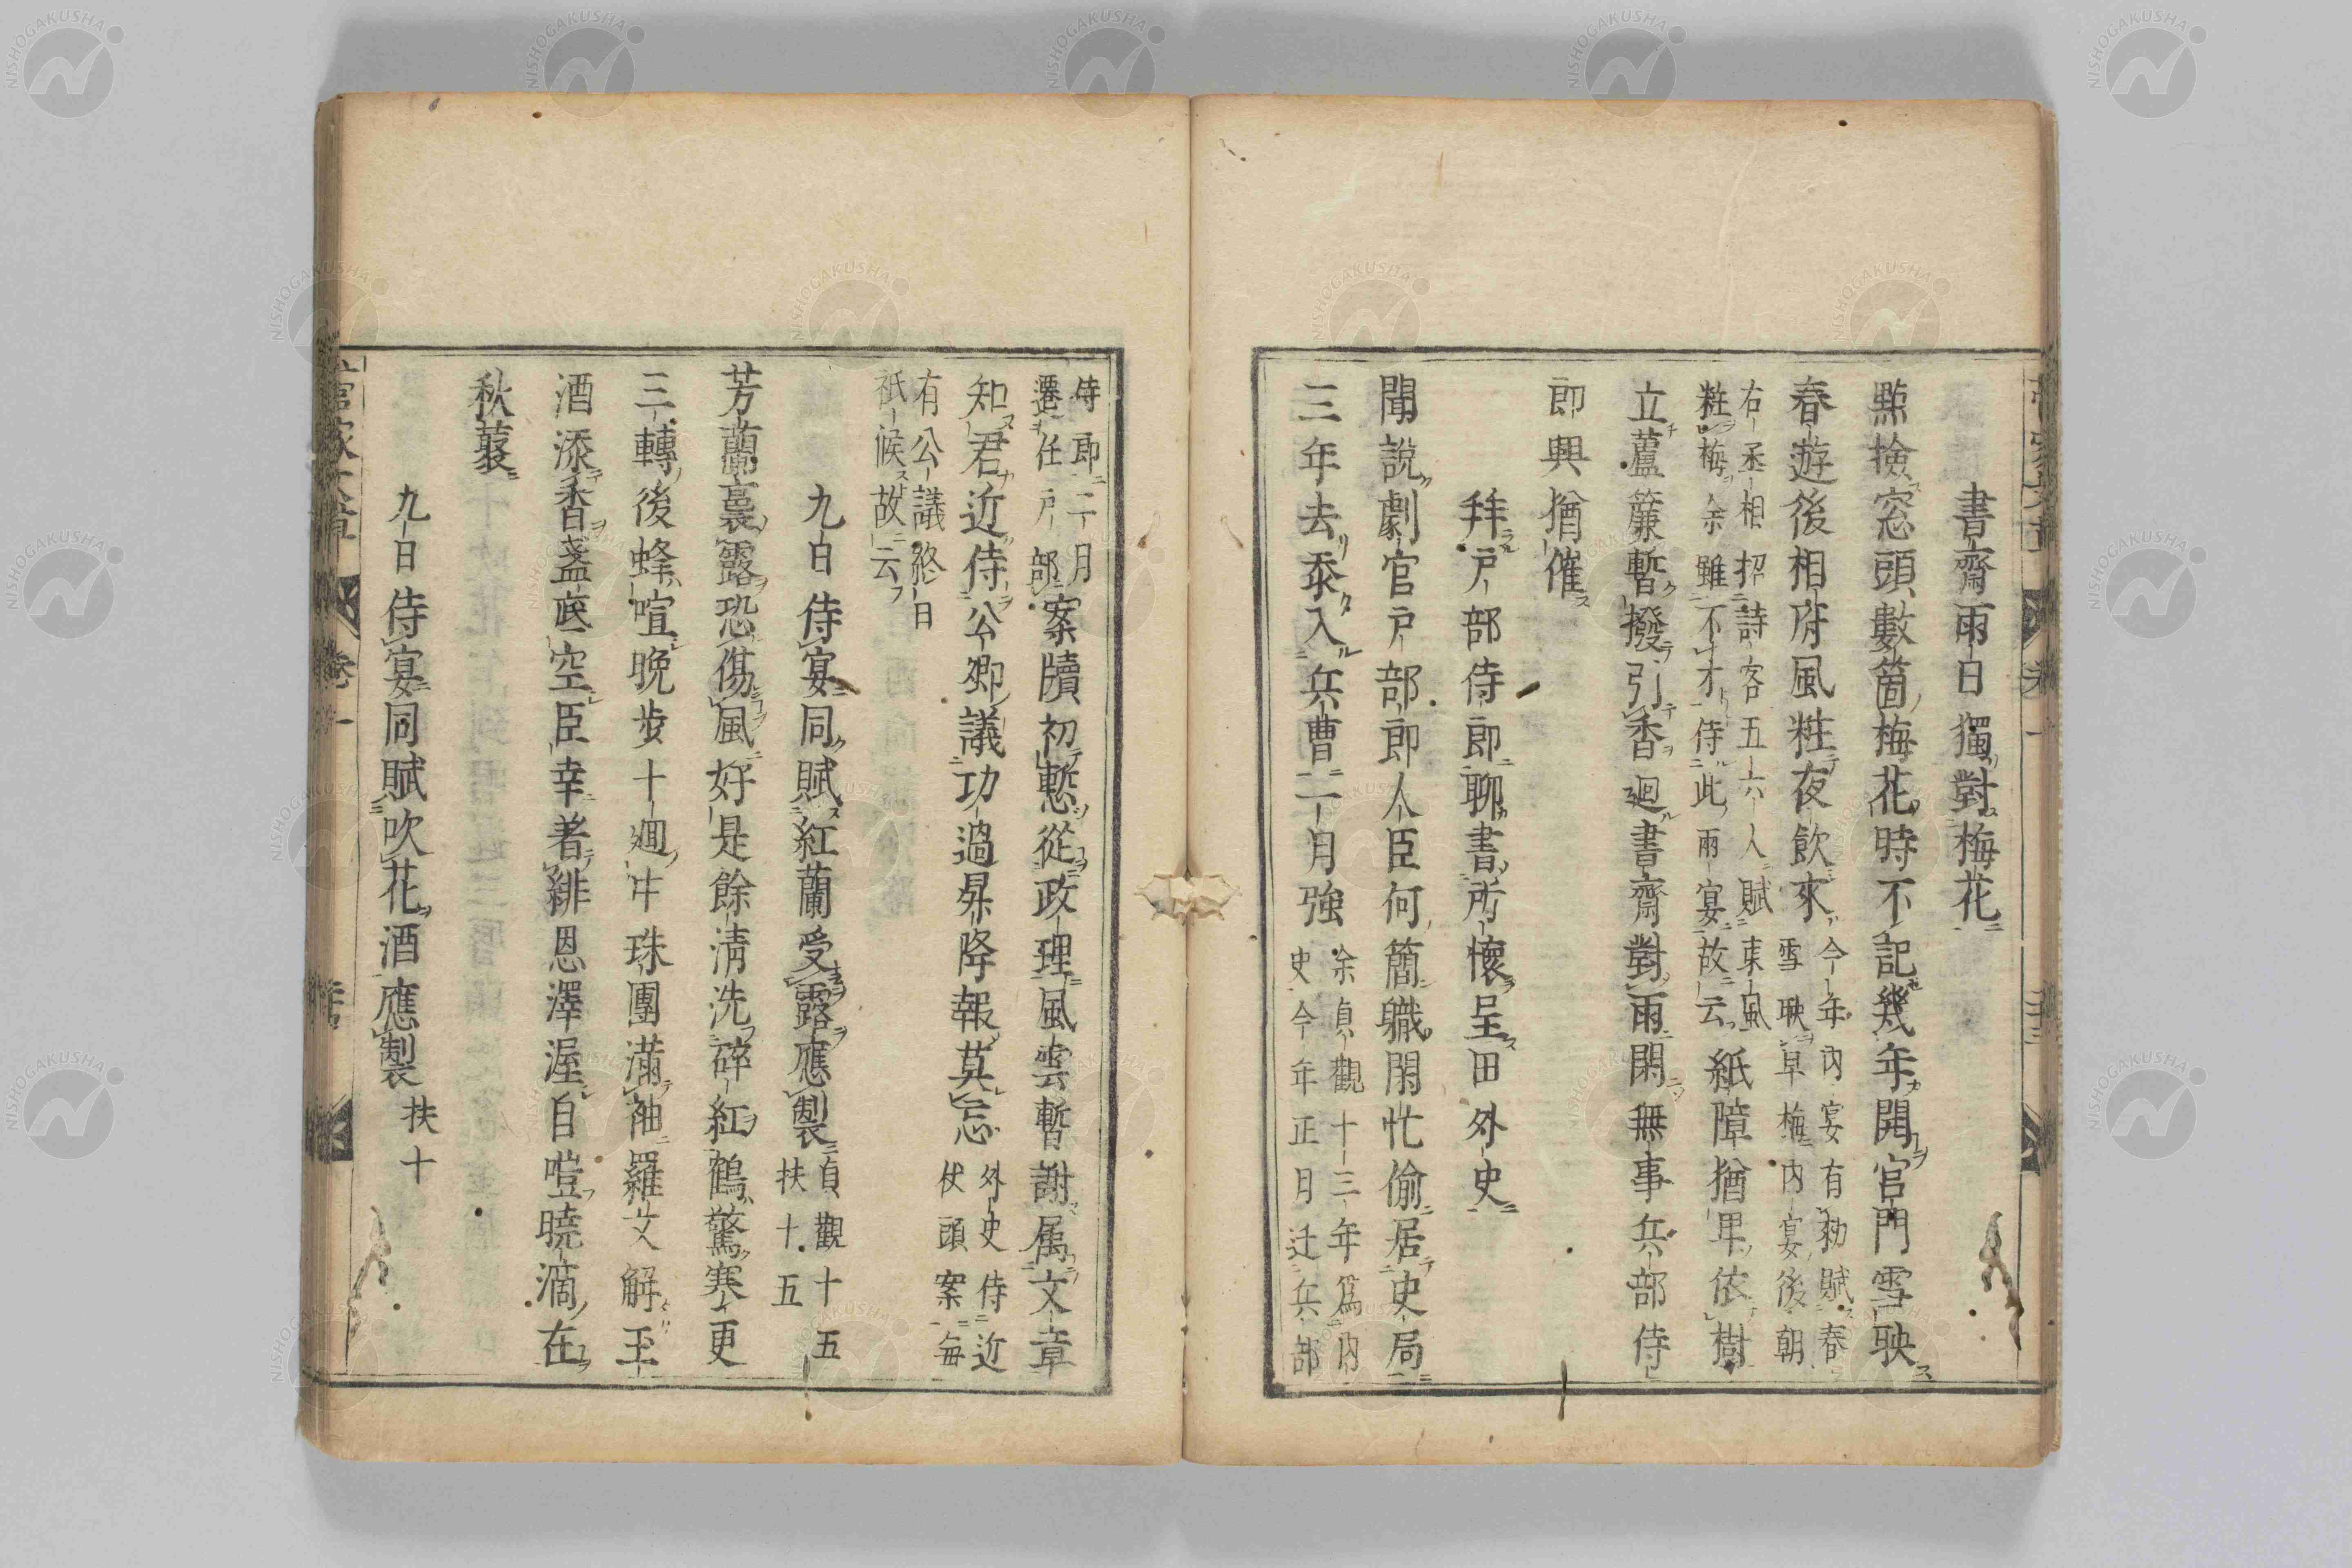 書齋雨日獨對梅花
點撿窓頭數箇梅花時不記幾年開官門雪映
春遊後相府風粧夜飮來今年內宴有勑賦春
雪映早梅內宴後朝
右丞相招詩客五六人賦東風
粧梅余雖不才侍此雨宴故云紙障猶卑依樹
立蘆簾暫撥引香廻書齋對雨閑無事兵部侍
郎興猶催
拜戸部侍郎聊書所懷呈田外史
聞說劇官戸部郎人臣何簡職閑忙偷居史局
三年去忝入兵曹二月強余貞觀十三年爲內
史今年正月迁兵部
侍郎二月
遷任戸部案牘初慙從政理風雲暫謝属文章
知君近侍公卿議功過昇降報莫忘外史侍近
仗頭案每
有公議終日
祇候故云
九日侍宴同賦紅蘭受露應製貞觀十五
扶十五
芳蘭裛露恐傷風好是餘淸洗碎紅鶴驚寒更
三轉後蜂喧晚步十廻中珠團滿袖羅文解玉
酒添香盞底空臣幸者緋恩澤渥自噬曉滴在
秋藂
九日侍宴同賦吹花酒應製扶十
NISHOGAKUSHA